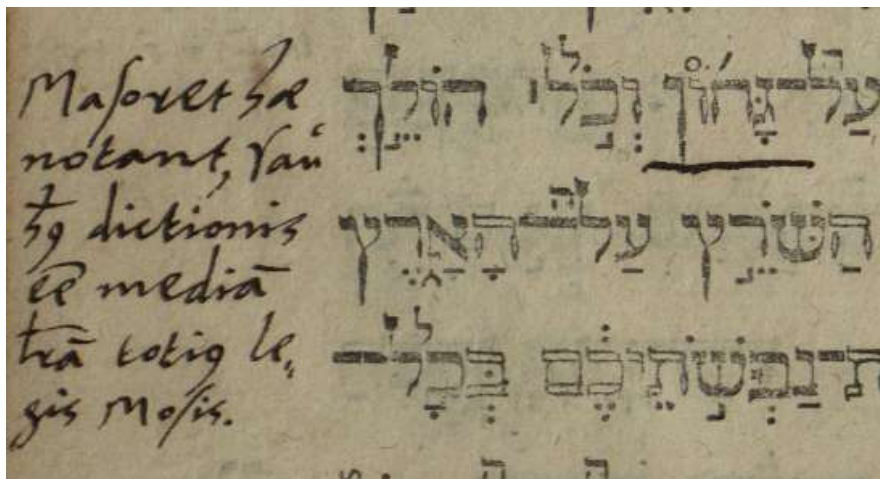 Masoret hæ
notant, Vau
hꝰ dictionis
eē mediā
lr̄ā totiꝰ le„
gis Mosis.
עַל־גָּחוֹן וְכֹל ׀ הוֹלֵךְ
הַשֹּׁרֵץ עַל־הָאָרֶץ
ת־נַפְשֹׁתֵיכֶם בְּכָל־